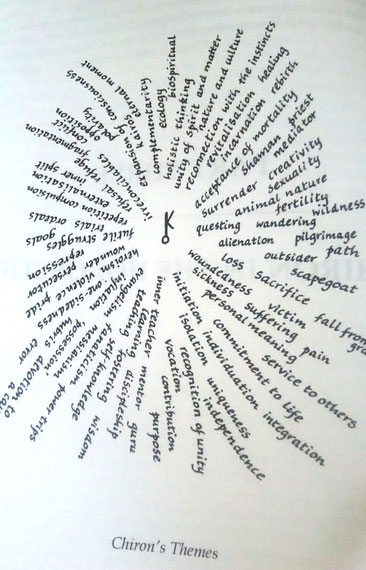 complementarity
ecology
biospiritual
holistic thinking
unity of spirit and matter
nature and culture
reconnection with the instincts
revitalisation healing
reincarnation rebirth
acceptance of mortality
shaman priest
mediator
surrender creativity
sexuality
animal nature
fertility
questing wandering wildness
alienation pilgrimage
outsider path
scapegoat
loss sacrifice
woundedness victim fall from
sickness suffering
personal meaning pain
service to others
commitment to life
initiation individuation integration
isolation uniqueness
independence
recognition of unity
vocation
contribution
purpose
inner teacher mentor guru
teaching discipleship
fostering wisdom
self-knowledge
fanaticism power trips
evangelism messianism
possession devotion to
inflation one-sidedness
heroism violence pride
wounder persecutor
repression
futile struggles goals
trials ordeals
repetition compulsion
externalisation
refuge inner split
fragmentation
conflict
opposition
irreconcilables polarity
expansion of consciousness
kairos eternal moment
Chiron's Themes